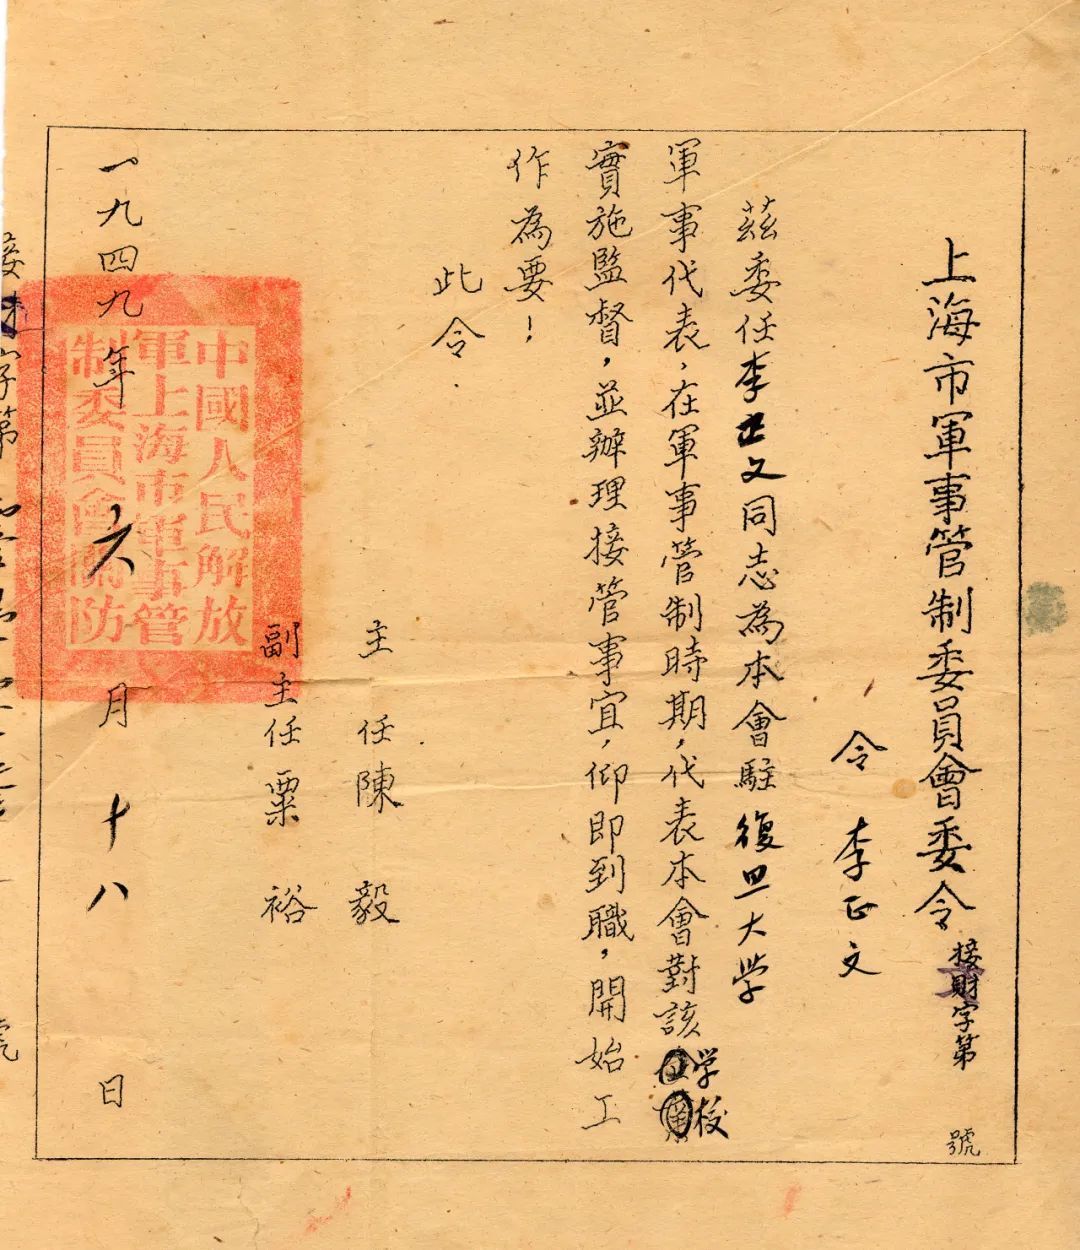 上海市軍事管制委員會委令
接財字第 號
令 李正文
茲委任李正文同志為本會駐復旦大学
軍事代表，在軍事管制時期，代表本會對該学校
實施監督，並辦理接管事宜，仰即到職，開始工
作為要！
此令．
主任陳毅
副主任粟裕
一九四九年六月十八日
中國人民解放
軍上海市軍事管
制委員會關防
字第 號